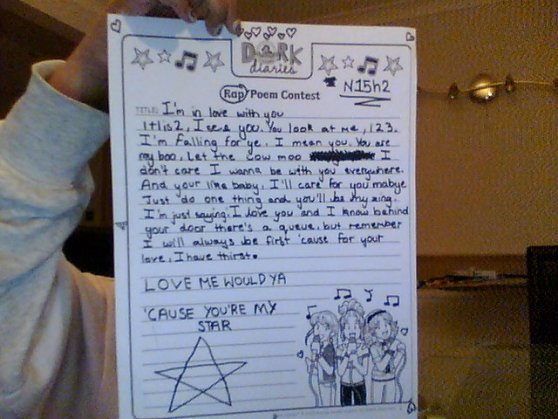 DORK
diaries
Rap/Poem Contest
N15h2
TITLE: I'm in love with you
1+1is2, I see you. You look at me, 123.
I'm falling for ye, I mean you. You are
my boo. Let the cow moo I
don't care I wanna be with you everywhere.
And your like baby, I'll care for you mabye
Just do one thing and you'll be my
I'm just saying. I love you and I know behind
your door there's a queue, but remember
I will always be first 'cause for your
love, I have thirst.
LOVE ME WOULD YA
'CAUSE YOU'RE MY
STAR